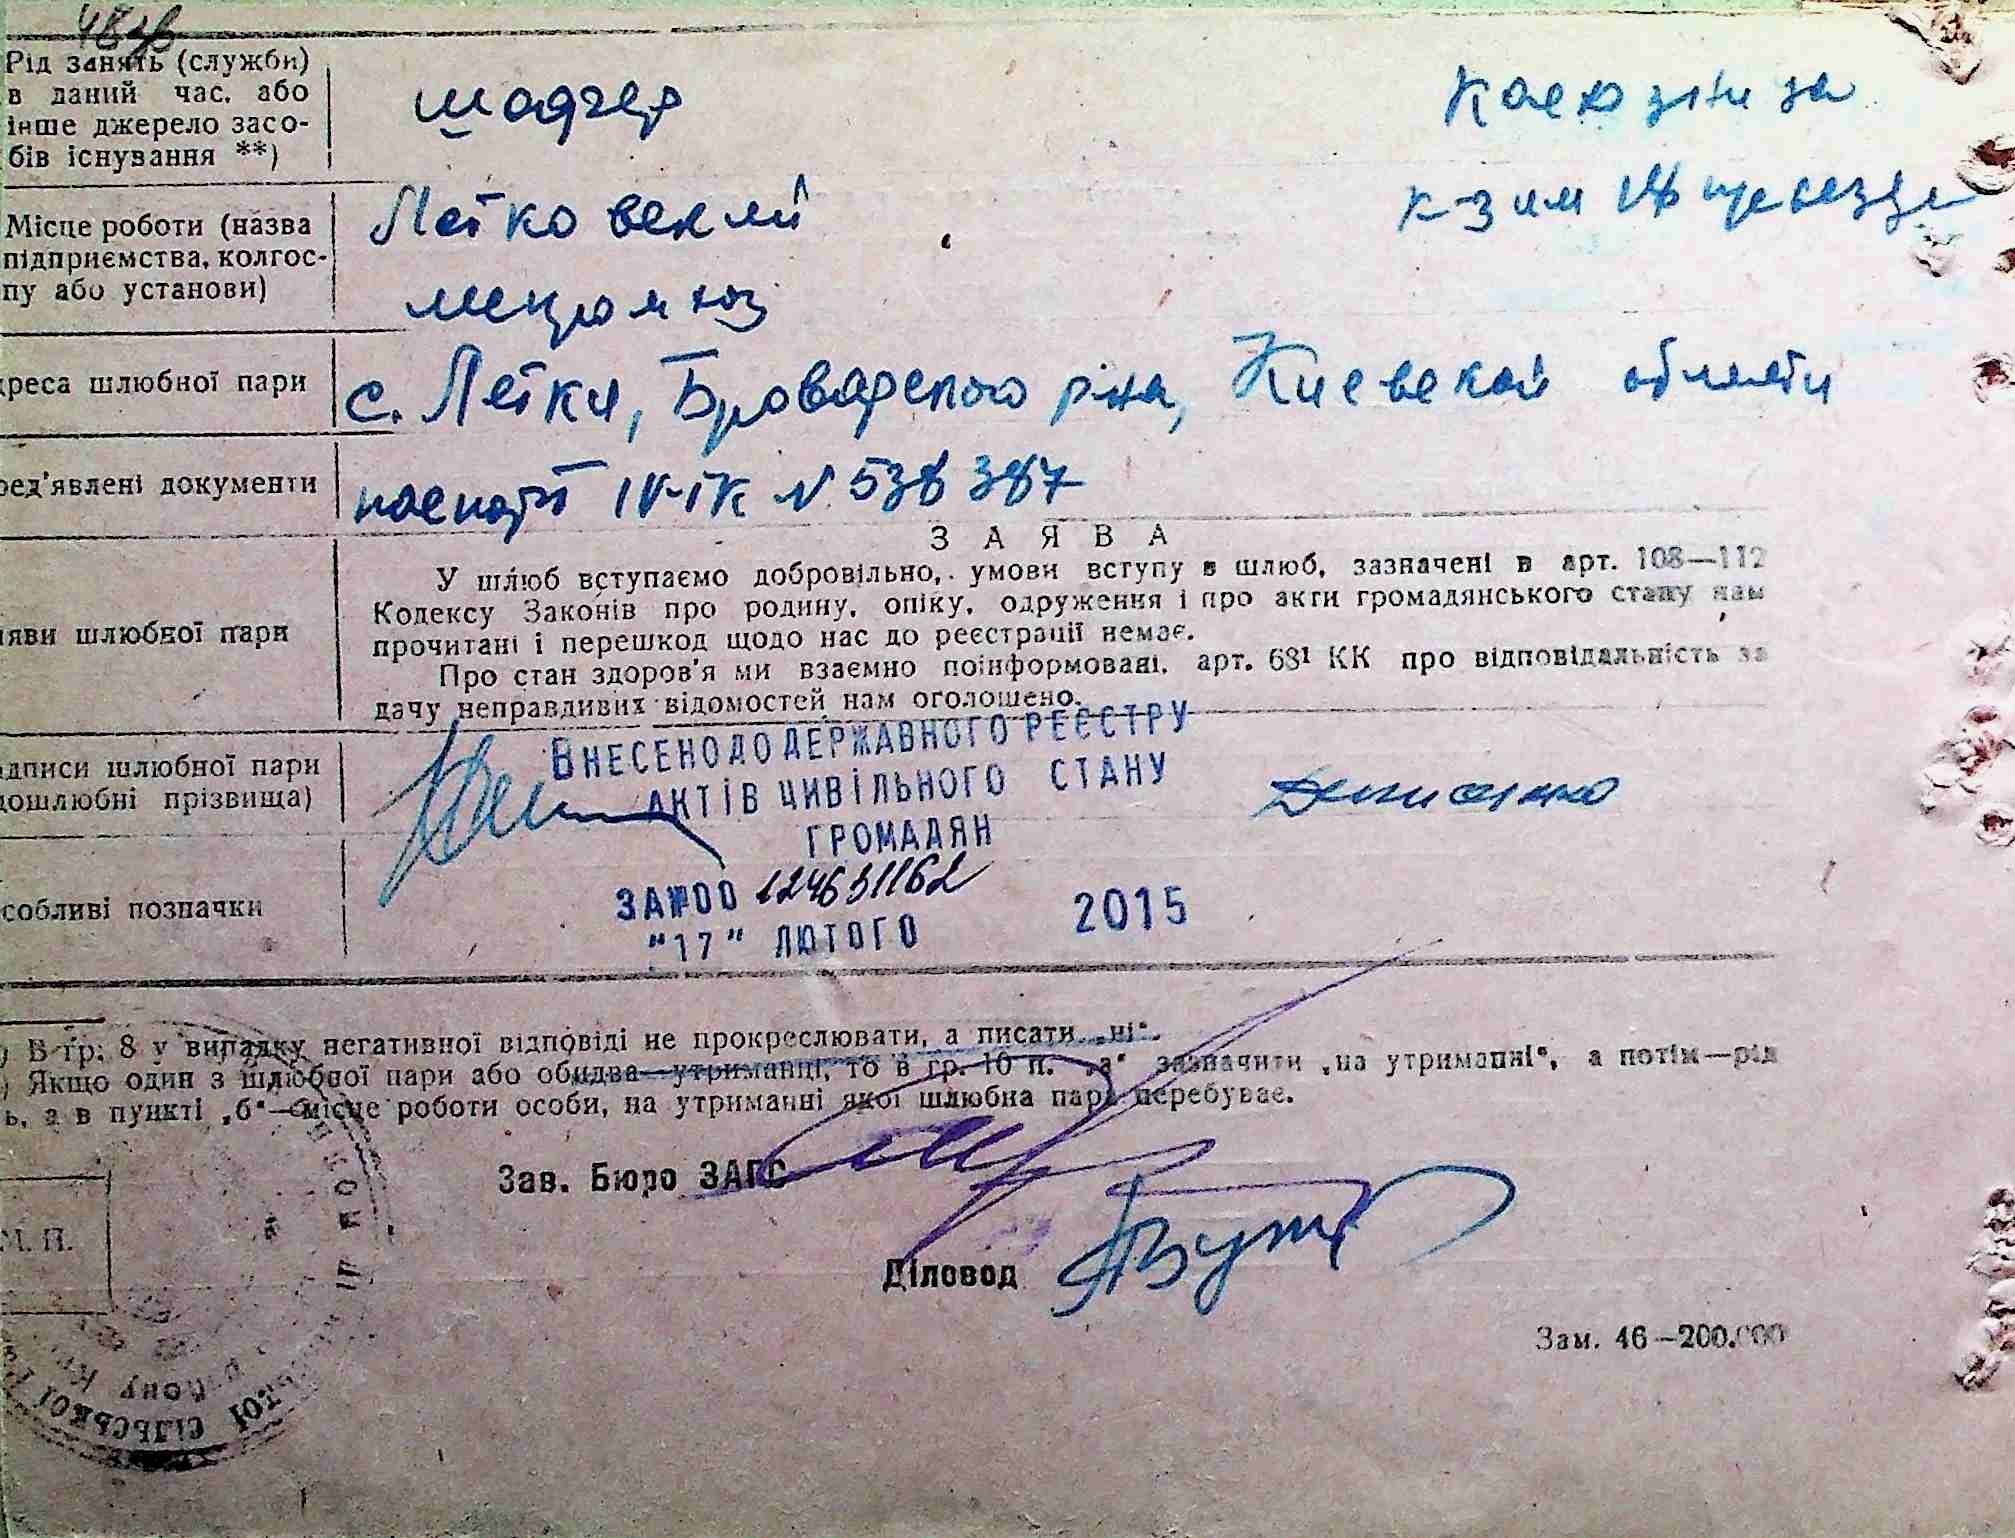 Рід занять (служби)
в даний час, або
інше джерело засо-
бів існування **)
шофер
колхозніца
Місце роботи (назва
підприємства, колгос-
пу або установи)
Летковский
к-з им
реса шлюбної пари
с. Летки, Броварского р-на, Киевской области
ред'явлені документи
паспорт IV-ІК N 538387
З А Я В А
яви шлюбної пари
У шлюб вступаємо добровільно, умови вступу в шлюб, зазначені в арт. 108—112
Кодексу Законів про родину, опіку, одруження і про акти громадянського стану нам
прочитані і перешкод щодо нас до реєстрації немає.
Про стан здоров'я ми взаємно поінформовані, арт. 68¹ КК про відповідальність за
дачу неправдивих відомостей нам оголошено.
дписи шлюбної пари
дошлюбні прізвища)
ВНЕСЕНО ДО ДЕРЖАВНОГО РЕЄСТРУ
АКТІВ ЦИВІЛЬНОГО СТАНУ
ГРОМАДЯН
Денисенко
собливі позначки
ЗА №00 124631162
"17" ЛЮТОГО 2015
) В гр. 8 у випадку негативної відповіді не прокреслювати, а писати „ні“.
) Якщо один з шлюбної пари або обидва—утриманці, то в гр. 10 п. „а“ зазначити „на утриманні“, а потім—рід
ь, а в пункті „б“—місце роботи особи, на утриманні якої шлюбна пара перебуває.
Зав. Бюро ЗАГС
М. П.
Діловод
Зам. 46—200.000
СІЛЬСЬКОЇ